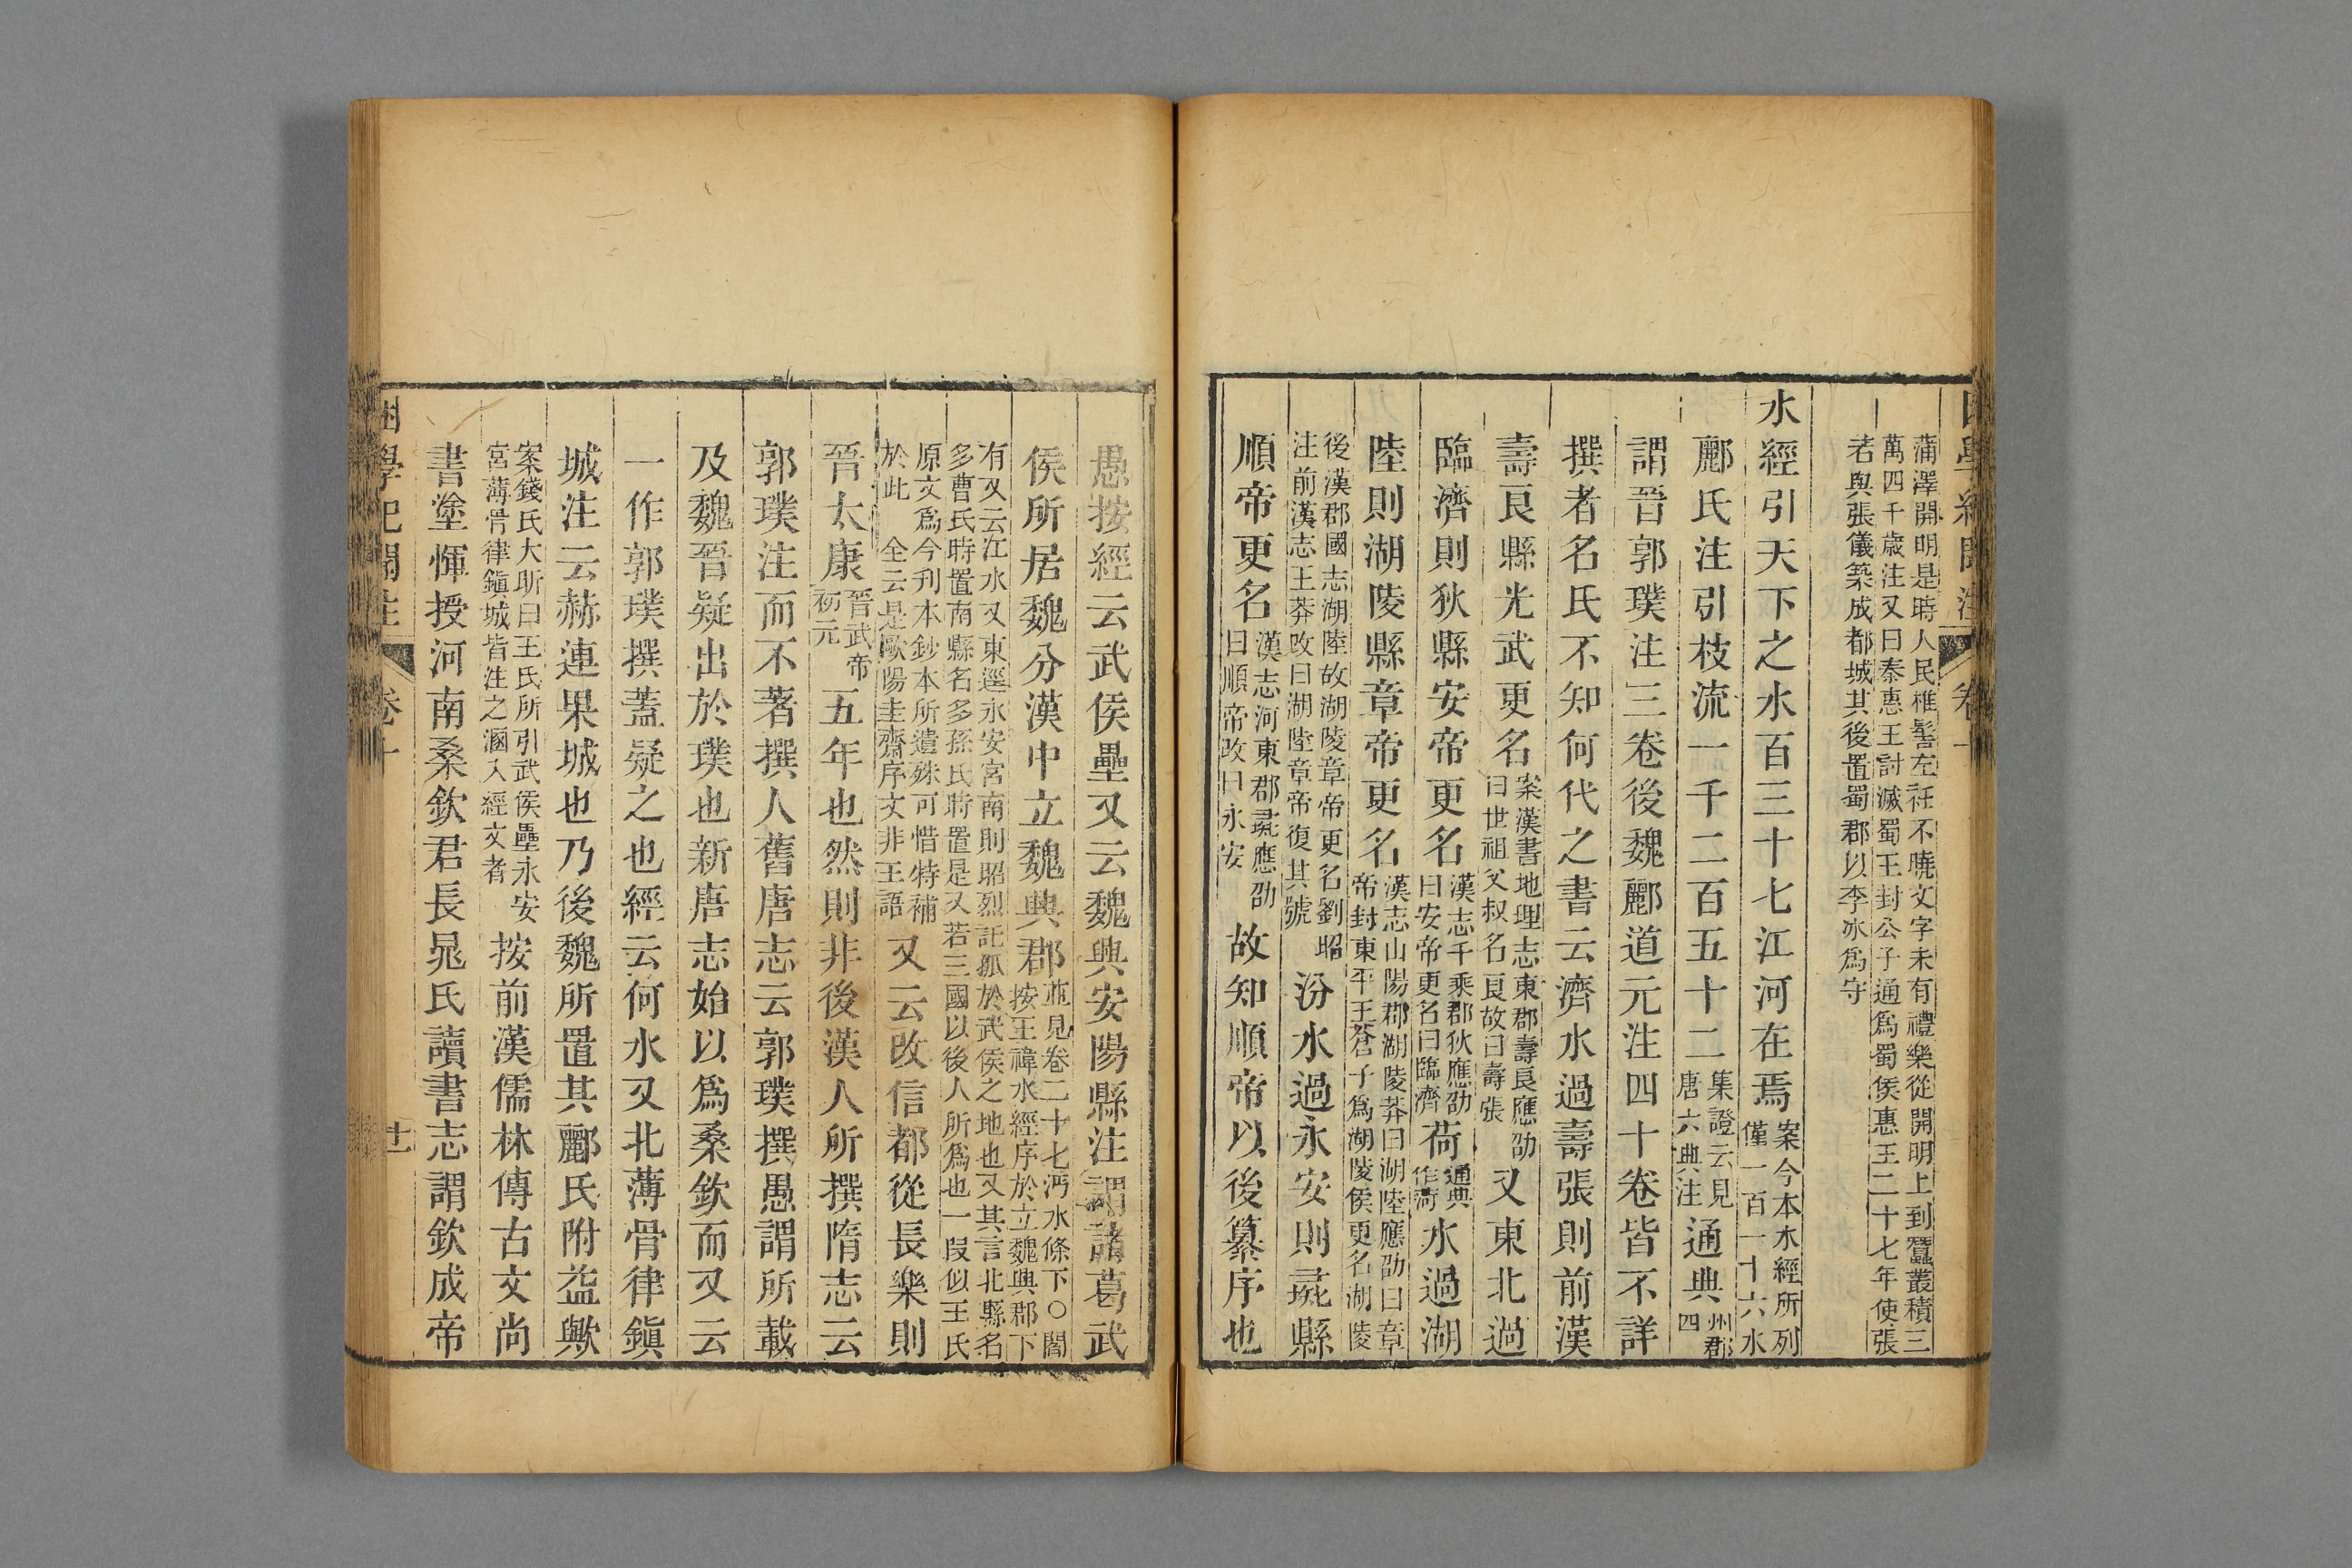 蒲澤開明是時人民椎髻左衽不曉文字未有禮樂從開明上到蠶叢積三
萬四千歲注又曰秦惠王討滅蜀王封公子通爲蜀侯惠王二十七年使張
若與張儀築成都城其後置蜀郡以李冰爲守
水經引天下之水百三十七江河在焉案今本水經所列僅一百一十六水
酈氏注引枝流一千二百五十二集證云見唐六典注通典州郡四
謂晉郭璞注三卷後魏酈道元注四十卷皆不詳
撰者名氏不知何代之書云濟水過壽張則前漢
壽良縣光武更名案漢書地理志東郡壽良應劭曰世祖父叔名良故曰壽張又東北過
臨濟則狄縣安帝更名漢志千乘郡狄應劭曰安帝更名曰臨濟荷通典作菏水過湖
陸則湖陵縣章帝更名漢志山陽郡湖陵莽曰湖陸應劭曰章帝封東平王蒼子爲湖陵侯更名湖陵
後漢郡國志湖陸故湖陵章帝更名劉昭注前漢志王莽改曰湖陸章帝復其號汾水過永安則彘縣
順帝更名漢志河東郡彘應劭曰順帝改曰永安故知順帝以後纂序也
愚按經云武侯壘又云魏興安陽縣注謂諸葛武
侯所居魏分漢中立魏興郡並見卷二十七沔水條下○閻按王禕水經序於立魏興郡下
有又云江水又東逕永安宮南則昭烈託孤於武侯之地也又其言北縣名多曹氏時置南縣名多孫氏時置是又若三國以後人所爲也一段似王氏
原文爲今刊本鈔本所遺殊可惜特補於此 全云是歐陽圭齋序文非王語又云改信都從長樂則
晉太康晉武帝初元五年也然則非後漢人所撰隋志云
郭璞注而不著撰人舊唐志云郭璞撰愚謂所載
及魏晉疑出於璞也新唐志始以爲桑欽而又云
一作郭璞撰蓋疑之也經云何水又北薄骨律鎭
城注云赫連果城也乃後魏所置其酈氏附益歟
案錢氏大昕曰王氏所引武侯壘永安宮薄骨律鎭城皆注之溷入經文者按前漢儒林傳古文尚
書塗惲授河南桑欽君長晁氏讀書志謂欽成帝
困學紀聞注 卷十 廿一